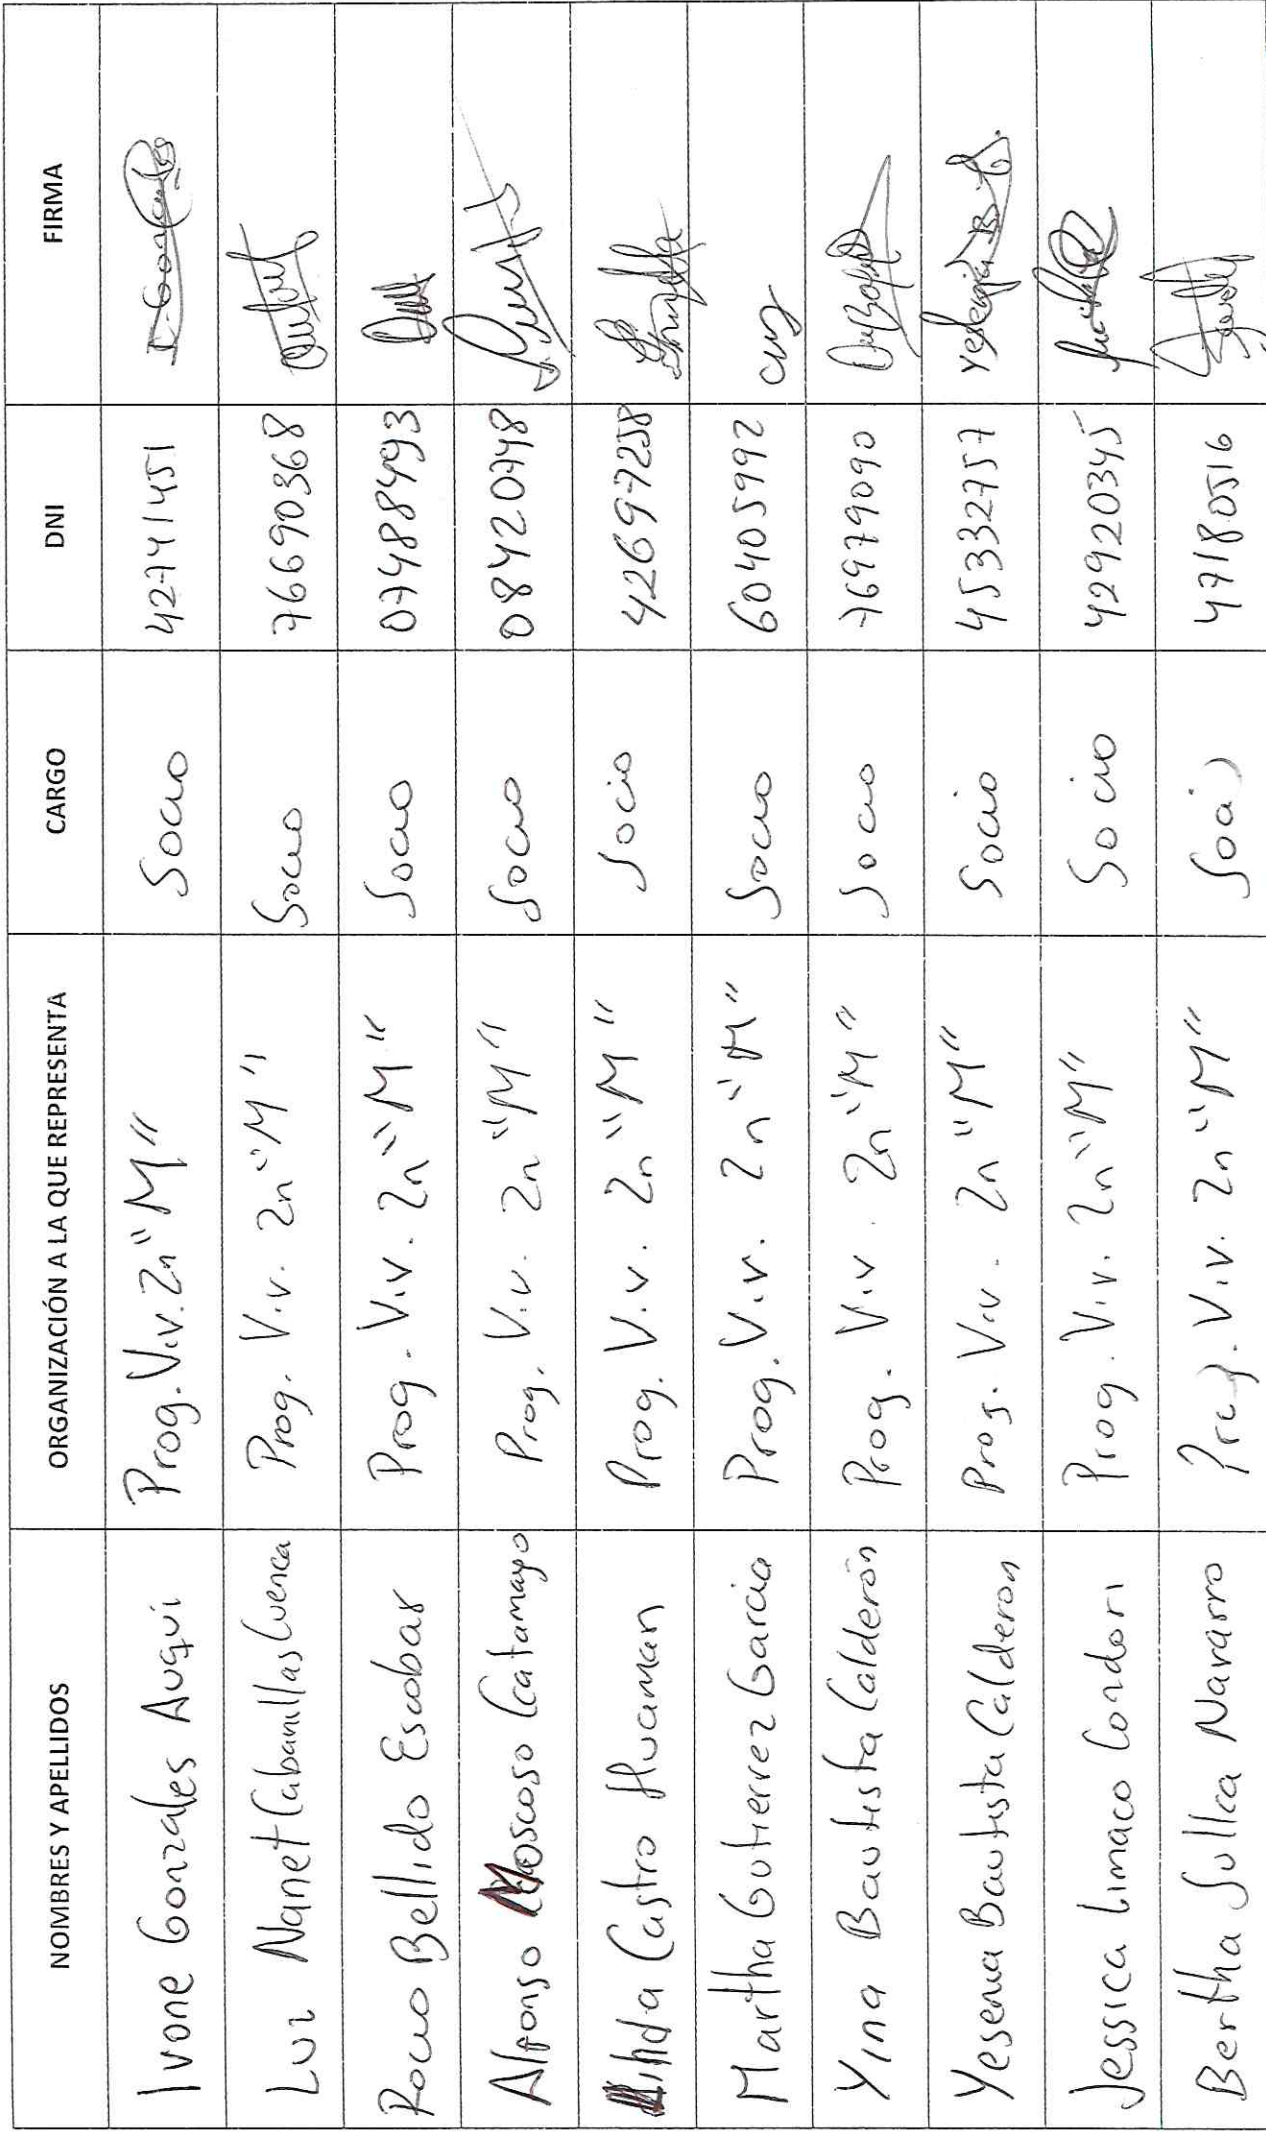 NOMBRES Y APELLIDOS ORGANIZACIÓN A LA QUE REPRESENTA CARGO DNI FIRMA
Ivone Gonzales Auqui Prog. Viv. Zn "M" Socio 42741451 I. Gonzales
Luz Nanet Cabanillas Cuenca Prog. Viv. Zn "M" Socio 76690368
Rocio Bellido Escobar Prog. Viv. Zn "M" Socio 07488493
Alfonso Moscoso Ccatamayo Prog. Viv. Zn "M" Socio 08420748
Castro Huaman Prog. Viv. Zn "M" Socio 42697258
Martha Gutierrez Garcia Prog. Viv. Zn "M" Socio 60405992
Yina Bautista Calderón Prog. Viv. Zn "M" Socio 76979090
Yesenia Bautista Calderon Prog. Viv. Zn "M" Socio 45332757 Yesenia B.
Jessica Limaco Condori Prog. Viv. Zn "M" Socio 42920345
Bertha Sullca Navarro Prog. Viv. Zn "M" Socio 47180516